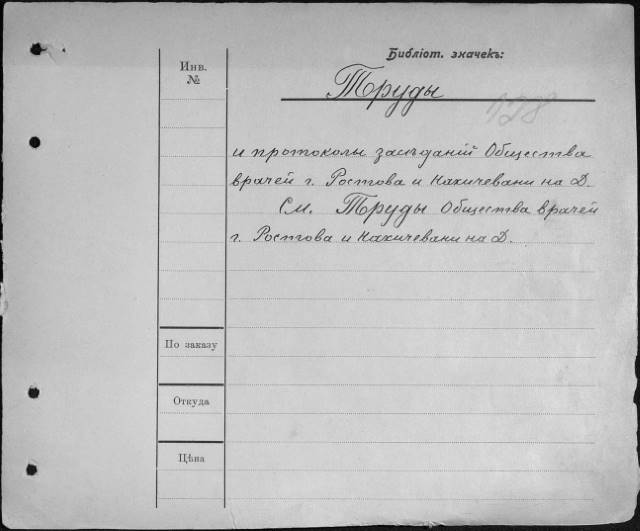 Библіот. значекъ:
Инв.
№
Труды
128
и протоколы засѣданій Общества
врачей г. Ростова и Нахичевани на Д.
См. Труды Общества врачей
г. Ростова и Нахичевани на Д.
По заказу
Откуда
Цѣна